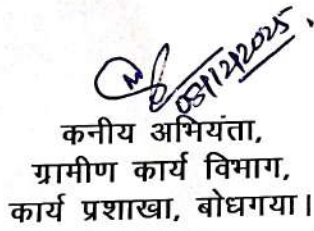 03/12/2025
कनीय अभियंता,
ग्रामीण कार्य विभाग,
कार्य प्रशाखा, बोधगया।